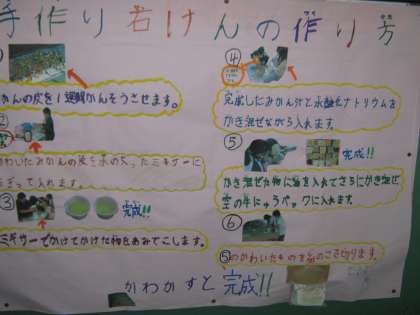 手作り石けんの作り方
かんの皮を1週間かんそうさせます。
②
わいたみかんの皮を水の入ったミキサーに
って入れます。
③
完成!!
ミキサーでかけてかけた物をあみでこします。
④
完成したみかん汁と水酸化ナトリウムを
かき混ぜながら入れます。
⑤
完成!!
かき混ぜた物に油を入れてさらにかき混ぜ
空の牛にゅうパックに入れます。
⑥
⑤のかわいたものを
切ります。
かわかすと完成!!